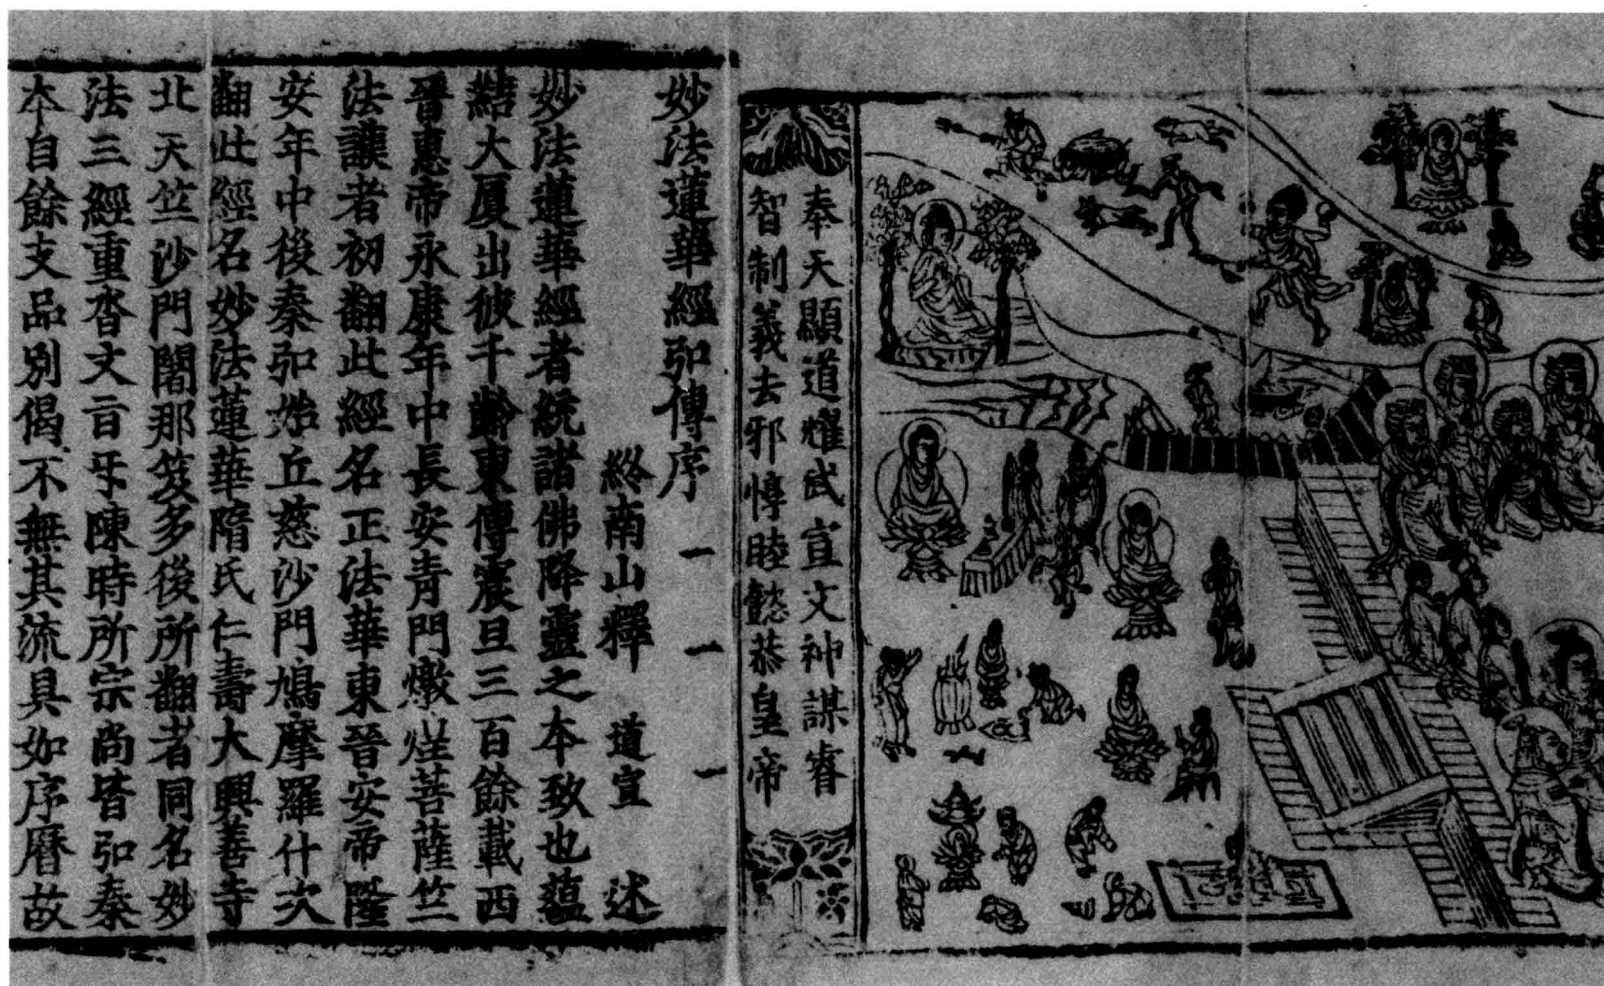 奉天顯道耀武宣文神謀睿
智制義去邪惇睦懿恭皇帝
妙法蓮華經弘傳序 一 一 一
終南山釋 道宣 述
妙法蓮華經者統諸佛降靈之本致也蘊
結大厦出彼千齡東傳震旦三百餘載西
晉惠帝永康年中長安青門燉煌菩薩竺
法護者初翻此經名正法華東晉安帝隆
安年中後秦弘始丘慈沙門鳩摩羅什次
翻此經名妙法蓮華隋氏仁壽大興善寺
北天竺沙門闍那笈多後所翻者同名妙
法三經重沓文旨互陳時所宗尚皆弘秦
本自餘支品別偈不無其流具如序曆故